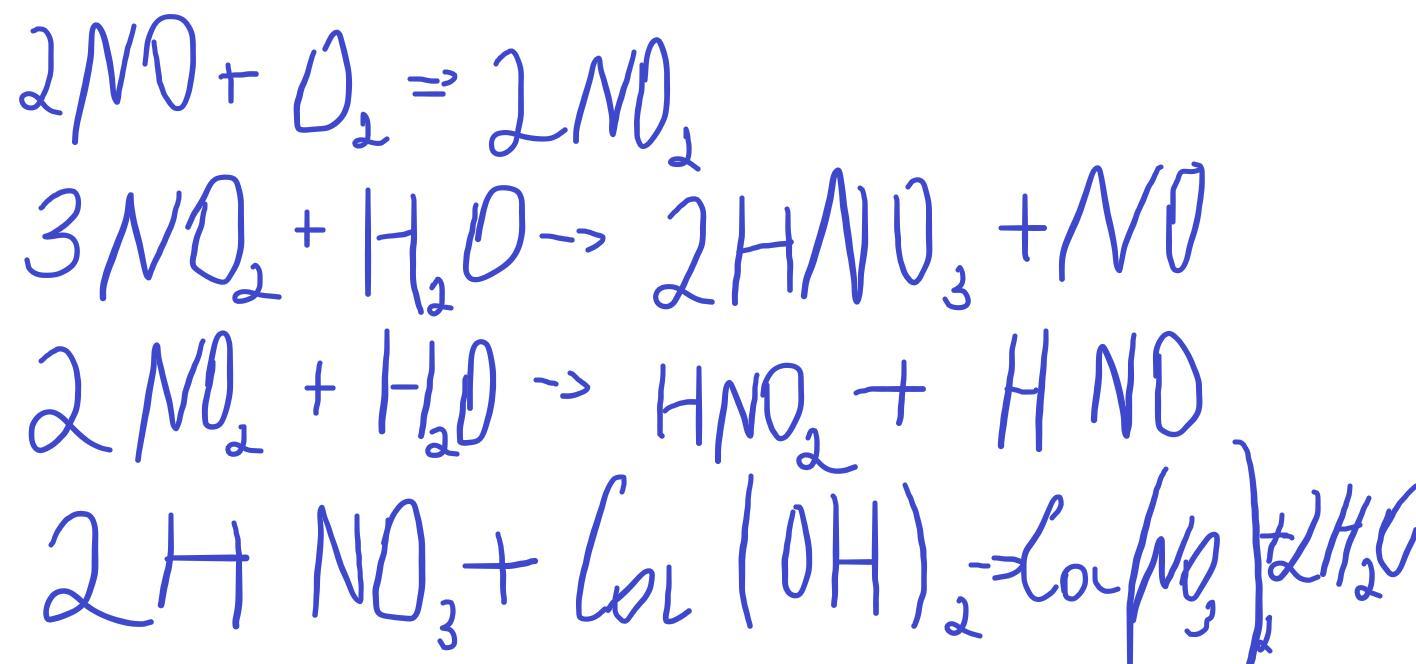 2NO + O₂ => 2NO₂
3NO₂ + H₂O -> 2HNO₃ + NO
2NO₂ + H₂O -> HNO₂ + HNO
2HNO₃ + Ca(OH)₂ -> Ca(NO₃)₂ + 2H₂O